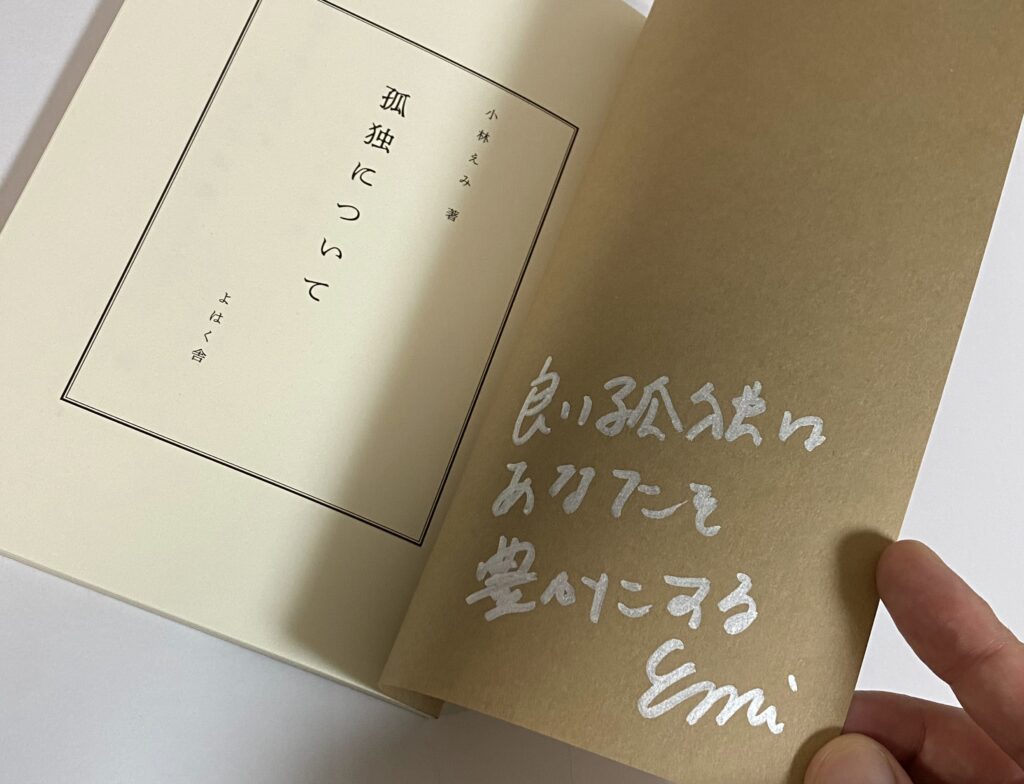 小林えみ 著
孤独について
よはく舎
良い孤独は
あなたを
豊かにする
Emi